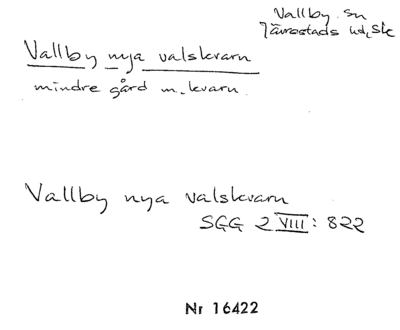 Vallby sn
Järrestads hd, Sk
Vallby nya valskvarn
mindre gård m. kvarn
Vallby nya valskvarn
SGG 2 VIII: 822
Nr 16422